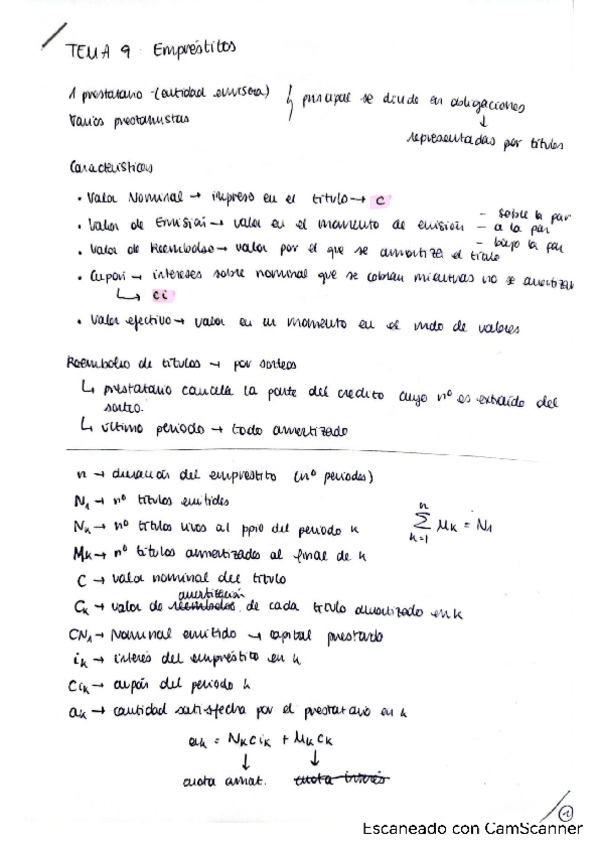 TEMA 9 : Empréstitos
1 prestatario · (entidad emisora)
Varios prestamistas
principal se divide en obligaciones
↓
representadas por títulos
Características
• Valor Nominal → impreso en el título → C
• Valor de Emisión → valor en el momento de emisión
– sobre la par
– a la par
– bajo la par
• Valor de Reembolso → valor por el que se amortiza el título
• Cupón → intereses sobre nominal que se cobran mientras no se amortizan
↳ Ci
• Valor efectivo → valor en un momento en el mdo de valores
Reembolso de títulos → por sorteos
↳ prestatario cancela la parte del credito cuyo nº es extraído del
sorteo.
↳ último periodo → todo amortizado
n → duración del empréstito (nº periodos)
N1 → nº títulos emitidos
Nk → nº títulos vivos al ppio del periodo k
Mk → nº títulos amortizados al final de k
n
∑ Mk = N1
k=1
C → valor nominal del título
amortización
Ck → valor de reembolso de cada título amortizado en k
CN1 → Nominal emitido → capital prestado
ik → interés del empréstito en k
Cik → cupón del periodo k
ak → cantidad satisfecha por el prestatario en k
ak = NkCik + MkCk
↓ ↓
cuota amort. cuota interés
1
Escaneado con CamScanner